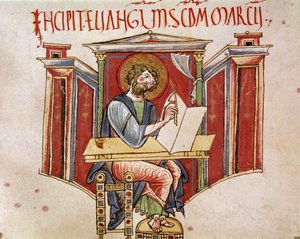 INCIPIT EVANGLIUM SCDM MARCU